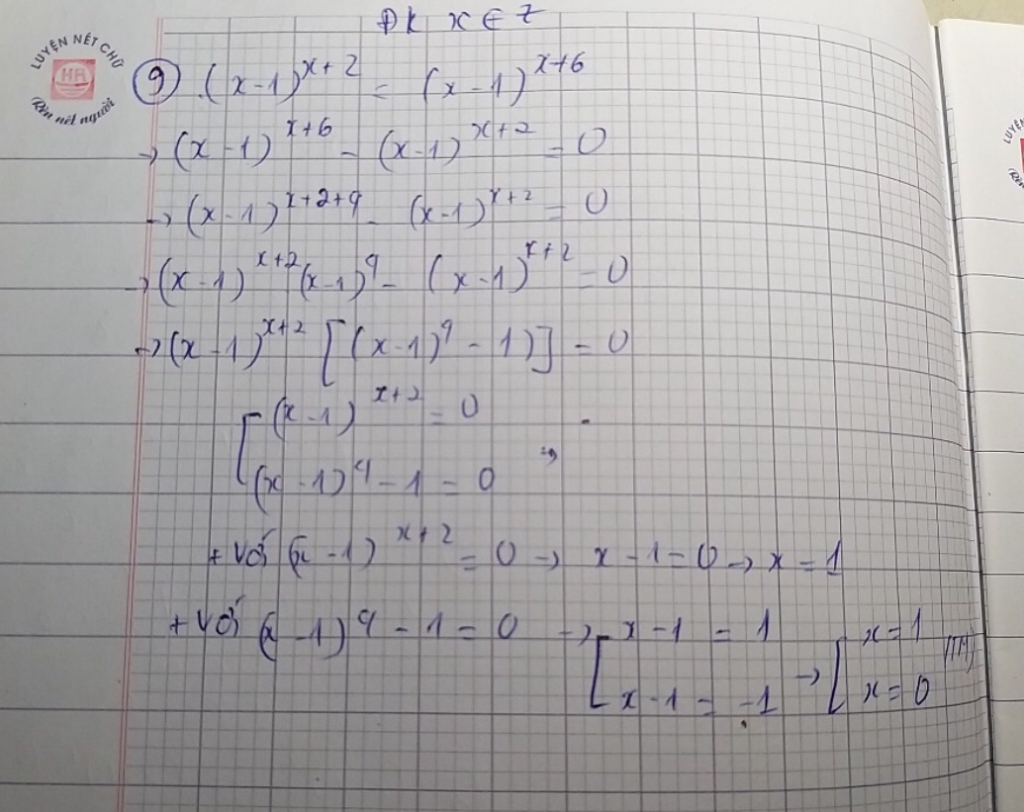 ĐK x ∈ Z
LUYỆN NÉT CHỮ
HR
Rèn nết người
⑨ (x-1)^{x+2} = (x-1)^{x+6}
→ (x-1)^{x+6} - (x-1)^{x+2} = 0
→ (x-1)^{x+2+4} - (x-1)^{x+2} = 0
→ (x-1)^{x+2} (x-1)^4 - (x-1)^{x+2} = 0
→ (x-1)^{x+2} [(x-1)^4 - 1)] = 0
[ (x-1)^{x+2} = 0
(x-1)^4 - 1 = 0
+ Với (x-1)^{x+2} = 0 → x-1 = 0 → x = 1
+ Với (x-1)^4 - 1 = 0 → [ x-1 = 1 → [ x = 1 (TM)
x-1 = -1 x = 0